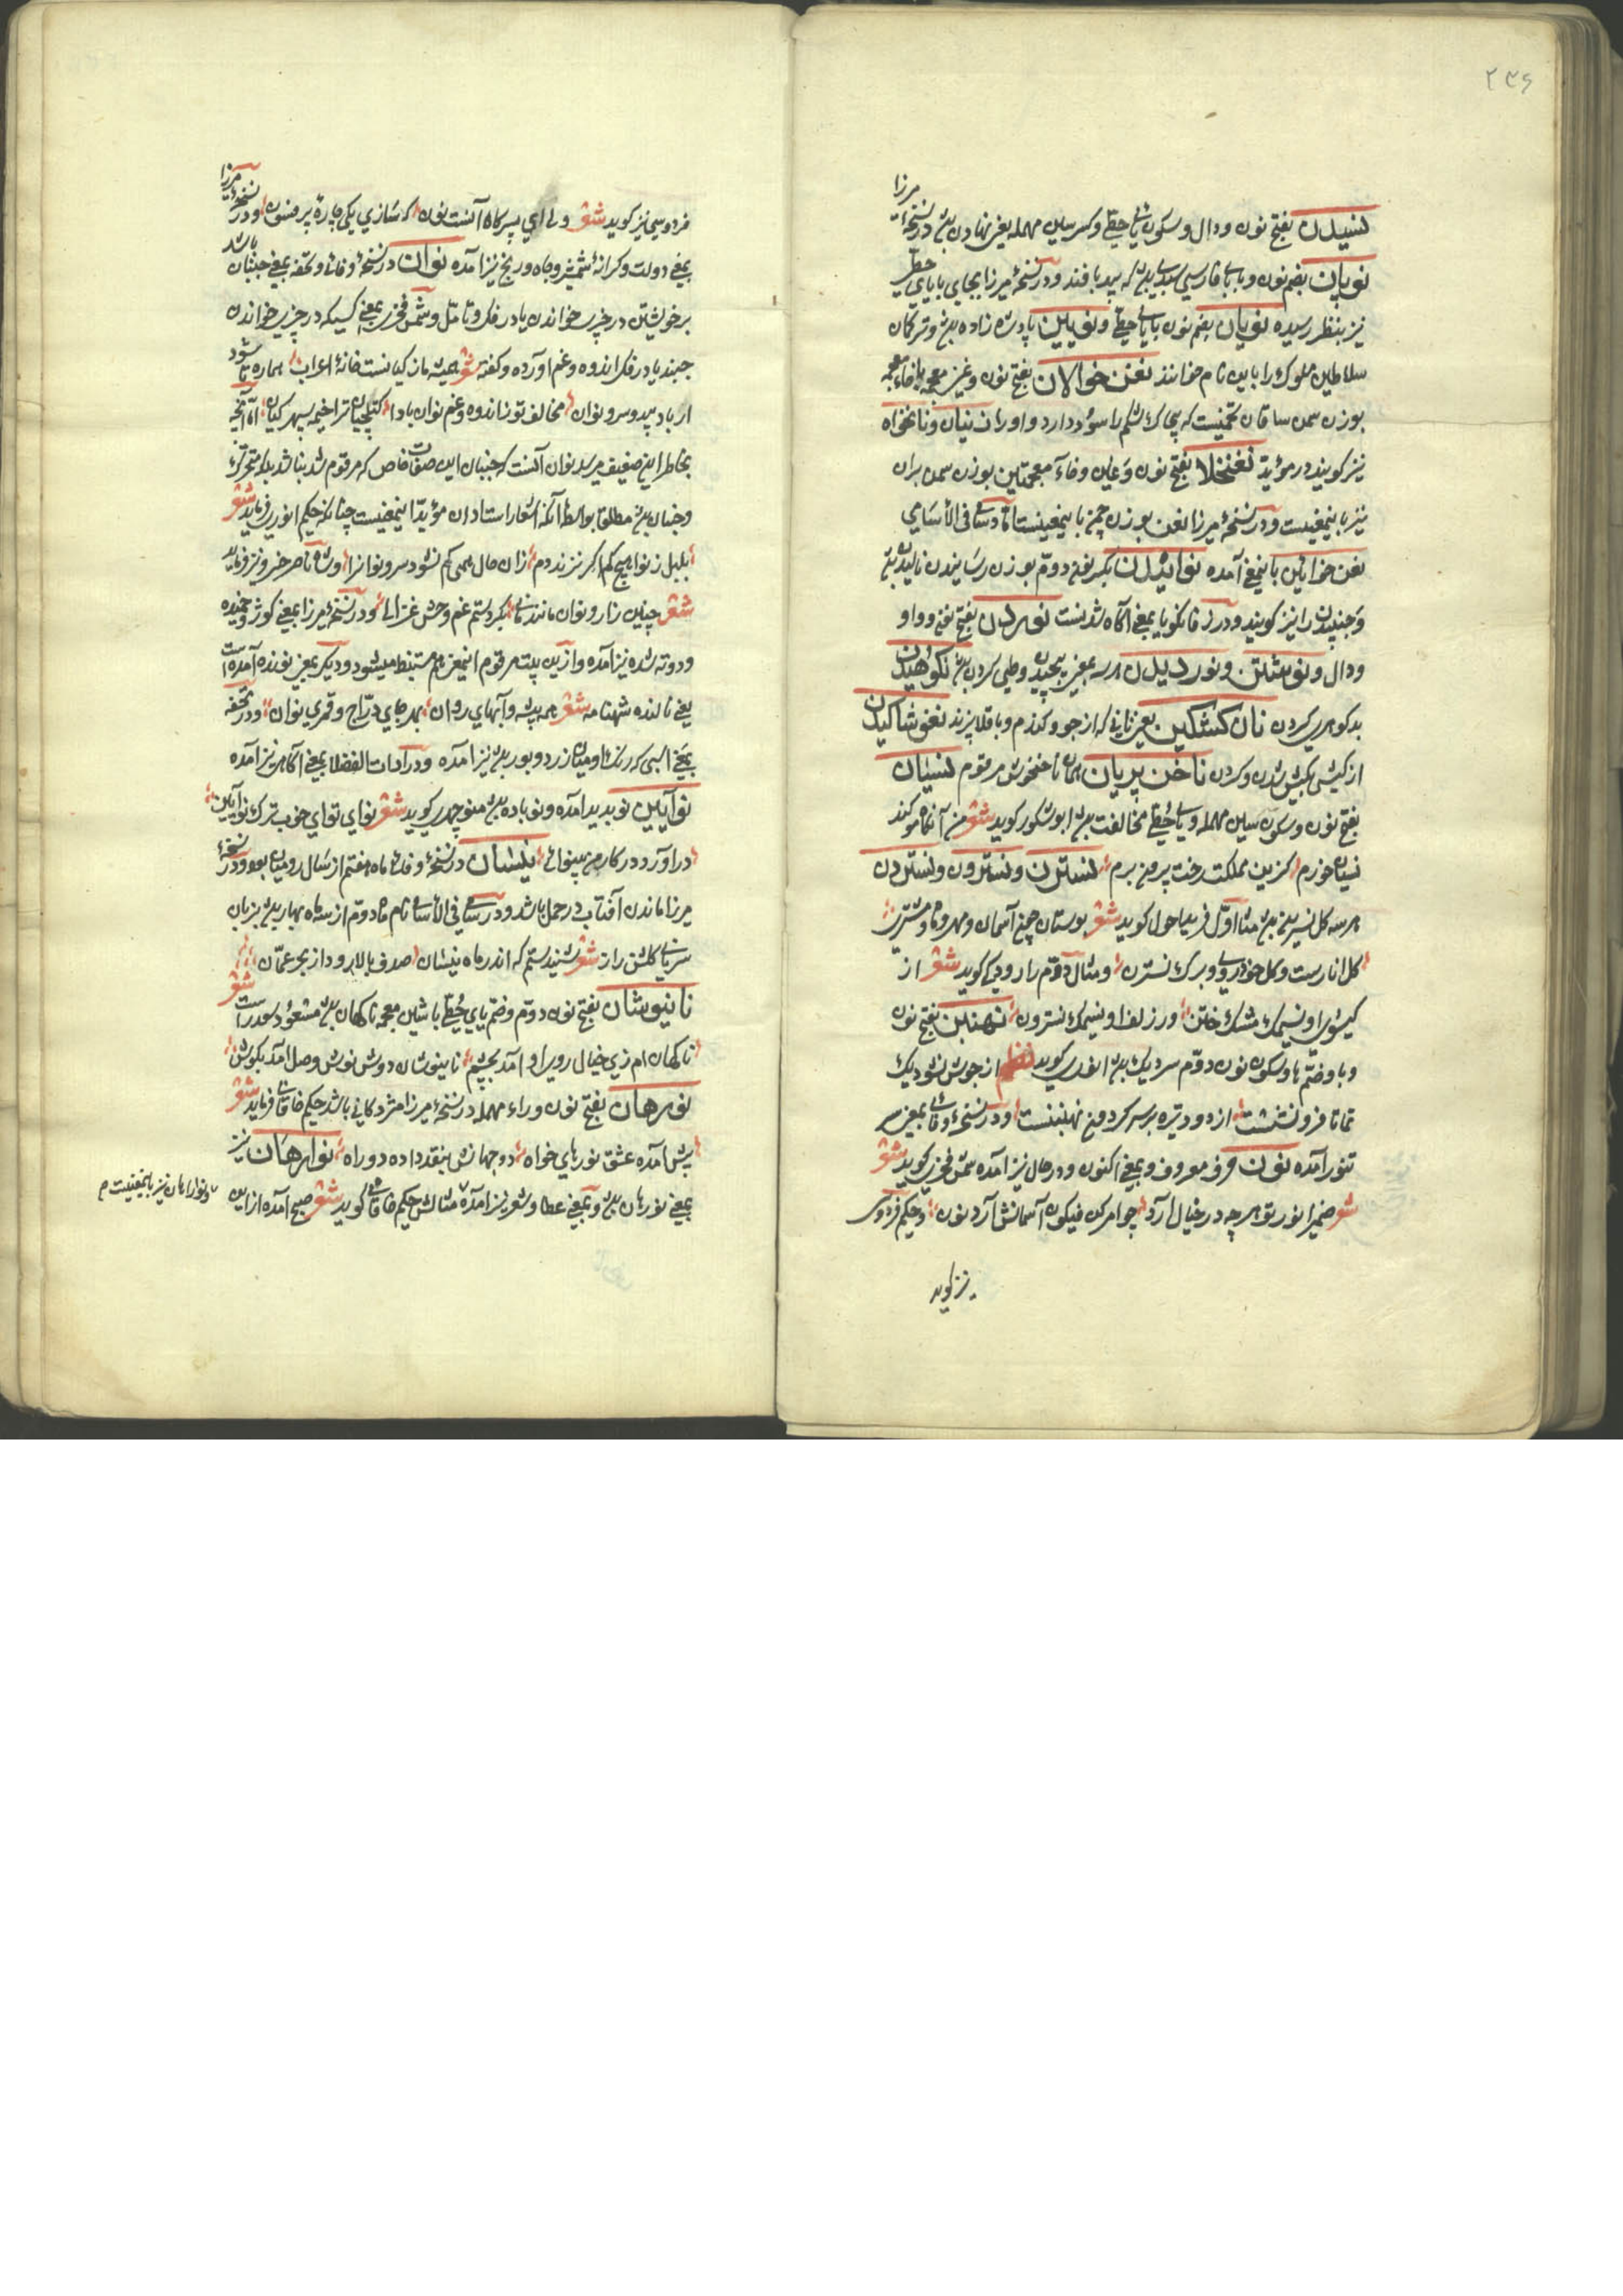 ۲۳۶
مرزا
نسیدن بفتح نون ودال وسکون یای حطی وکسر سین مهمله یعنی نهادن بود در نسخهٔ
نوپان بضم نون وبا بای فارسی سبدی بود که از بید بافند ودر نسخهٔ میرزا بجای با یای حطی
نیز بنظر رسیده نویان بضم نون با یای حطی ونویین پادشاه زاده بود وترکان
سلاطین ملوک را باین نام خوانند نغن خوالان بفتح نون وغین معجمه با خاء معجمه
بوزن سمن ساقان تخمیست که چاک شکم را سود دارد واورا نینان ونانخواه
نیز کویند در مؤید نغنخلا بفتح نون وغین وخاء معجمتین بوزن سمن بران
نیز باینمعنیست ودر نسخهٔ میرزا نغن بوزن چمن باینمعنیست اما در سامی فی الاسامی
نغن خوایین باینمعنی آمده نوایدن بکسر نون دوم بوزن رسانیدن نالیدن بود
وجنبیدن را نیز کویند ودر زفانکویا بمعنی آکاه شدنست نوردن بفتح نون وواو
ودال ونوشتن ونوردیدن هر سه بمعنی پیچیدن وطی کردن بود نکوهیدن
بدکویی کردن نان کشکین یعنی نانی که از جو وکندم وباقلا پزند نغوشاکیدن
از کیشی بکیش شدن وکردن ناخن پریان همان ناخنخوش مرقوم نسیان
بفتح نون وسکون سین مهمله ویای حطی مخالفت بود ابوشکور کوید شعر من آنکاه سوکند
نسیان خورم کزین مملکت رخت بیرون برم نسترن ونسترون ونستردن
هر سه کل نسرین بود مثال اول فرید احول کوید شعر بوستان چون آسمان ومهر وماه ومشتری
کل انارست وکل خودروی وبرک نسترن ومثال دوم را رودکی کوید شعر از
کیسوی او نسیمک مشک ختن ورزلف او نسیمک نسترون نهنبن بفتح نون
وبا وضم ها وسکون نون دوم سر دیک بود انوری کوید نظم از جوش نشود دیک
تمانا فرو ننشست از دود تیره بر سر کردون نهنبنست ودر نسخهٔ وفائی بمعنی سر
تنور آمده نون حرف معروف وبمعنی اکنون ودر حال نیز آمده شمس فخری کوید شعر
شو ضمیر انور تو هر چه در خیال آرد چو امر کن فیکون آسمانش آرد نون وحکیم فردوسی
نیز کوید
مرزا
فردوسی نیز کوید شعر ولی ای پسر کاه آنست نون که سازی یکی چارهٔ پر فسون ودر نسخهٔ
بمعنی دولت وکرانهٔ شمشیر وچاه ورنج نیز آمده نوان در نسخهٔ وفائی وتحفه بمعنی جنبان باشد
بر خویشتن در چیزی خواندن یا در فکر وتامل وشمس فخری بمعنی کسیکه در چیزی خواندن
جنبد یا در فکر اندوه وغم آورده وکفته شعر همیشه ماز کیانست خانهٔ اعراب هماره تا شود
از باد بید وسرو نوان مخالف تو ز اندوه وغم نوان بادا
بخاطر این ضعیف میرسد نوان آنست که جنبان این صفات خاص که مرقوم شد نباشد بلکه متحرک
وجنبان بود مطلقا بواسطهٔ آنکه اشعار استادان مؤید اینمعنیست چنانکه حکیم انوری فرماید شعر
بلبل ز نوا هیچ کم نزند دم زان حال همی کم نشود سرو نوانرا وشاه ناصر خسرو نیز فرماید
شعر چنین زار ونوان مانند نالی بکردستم غم وحش غزالی ودر نسخهٔ میرزا بمعنی کوژ وخمیده
ودوته شده نیز آمده وازین بیت مرقوم اینمعنی هم مستنبط میشود ودیکر بمعنی نونده آمده است
یعنی نالنده شهنامه شعر همه بیشه وآبهای روان بهر جای دراج وقمری نوان ودر تحفه
بمعنی اسبی که رنک او میان زرد وبور بود نیز آمده ودر ادات الفضلا بمعنی آکاهی نیز آمده
نوآیین نو پدید آمده ونوباده بود منوچهری کوید شعر نوای تو ای خوب ترک نوآیین
درآورد در کار من بینوائی نیسان در نسخهٔ وفائی ماه هفتم از سال رومیان بود ودر نسخهٔ
میرزا ماندن آفتاب در حمل باشد ودر سامی فی الاسامی نام ماه دوم از سه ماه بهار بود بزبان
سریانی کلشن راز شعر شنیدستم که اندر ماه نیسان صدف بالا رود از بحر عمان
نانیوشان بفتح نون دوم وضم یای حطی با شین معجمه ناکهان بود مسعود سعد راست شعر
ناکهان ام زی خیال روی او آمد بچشم نانیوشان دوش نوش وصل آمد بکوش
نورهان بفتح نون وراء مهمله در نسخهٔ میرزا مژدکانی باشد حکیم خاقانی فرماید شعر
پیش آمده عشق نورهای خواه دو جهانش بنقد داده دو راه نوارهان نیز
بمعنی نورهان بود وبمعنی عطا وشعر نیز آمده مثالش حکیم خاقانی کوید شعر صبح آمده از این
ونوارهان نیز باینمعنیست م